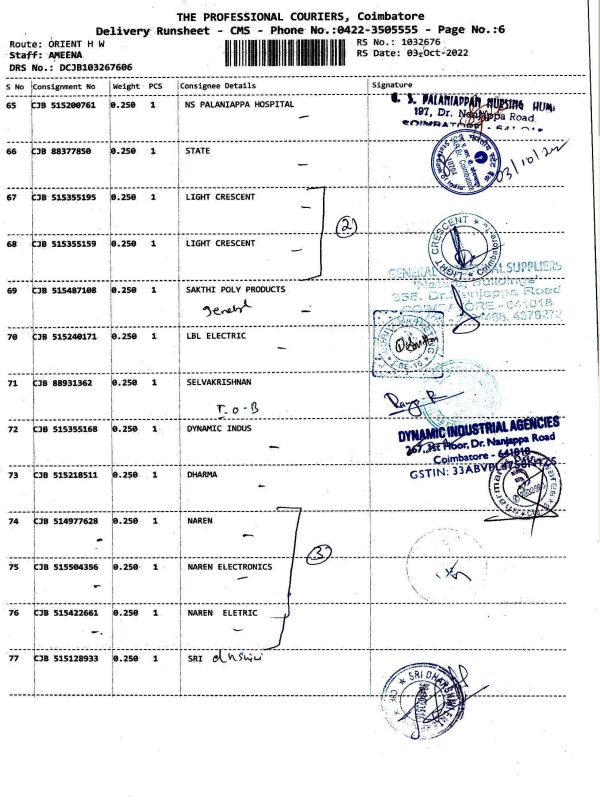 THE PROFESSIONAL COURIERS, Coimbatore
Delivery Runsheet - CMS - Phone No.:0422-3505555 - Page No.:6
Route: ORIENT H W
RS No.: 1032676
Staff: AMEENA
RS Date: 03-Oct-2022
DRS No.: DCJB103267606
S No Consignment No Weight PCS Consignee Details Signature
65 CJB 515200761 0.250 1 NS PALANIAPPA HOSPITAL
S. PALANIAPPAN NURSING HOM
197, Dr. Nanjappa Road
COIMBATORE - 641 018
66 CJB 88377850 0.250 1 STATE
03/10/22
67 CJB 515355195 0.250 1 LIGHT CRESCENT
2
68 CJB 515355159 0.250 1 LIGHT CRESCENT
LIGHT CRESCENT
Coimbatore
69 CJB 515487108 0.250 1 SAKTHI POLY PRODUCTS
General
SUPPLIERS
335, Dr. Nanjappa Road
COIMBATORE - 641018
4378272
70 CJB 515240171 0.250 1 LBL ELECTRIC
71 CJB 88931362 0.250 1 SELVAKRISHNAN
T.O.B
72 CJB 515355168 0.250 1 DYNAMIC INDUS
DYNAMIC INDUSTRIAL AGENCIES
267, 1st Floor, Dr. Nanjappa Road
Coimbatore - 641018
GSTIN: 33ABVPL
73 CJB 515218511 0.250 1 DHARMA
74 CJB 514977628 0.250 1 NAREN
3
75 CJB 515504356 0.250 1 NAREN ELECTRONICS
76 CJB 515422661 0.250 1 NAREN ELETRIC
77 CJB 515128933 0.250 1 SRI
SRI DHARSHINI